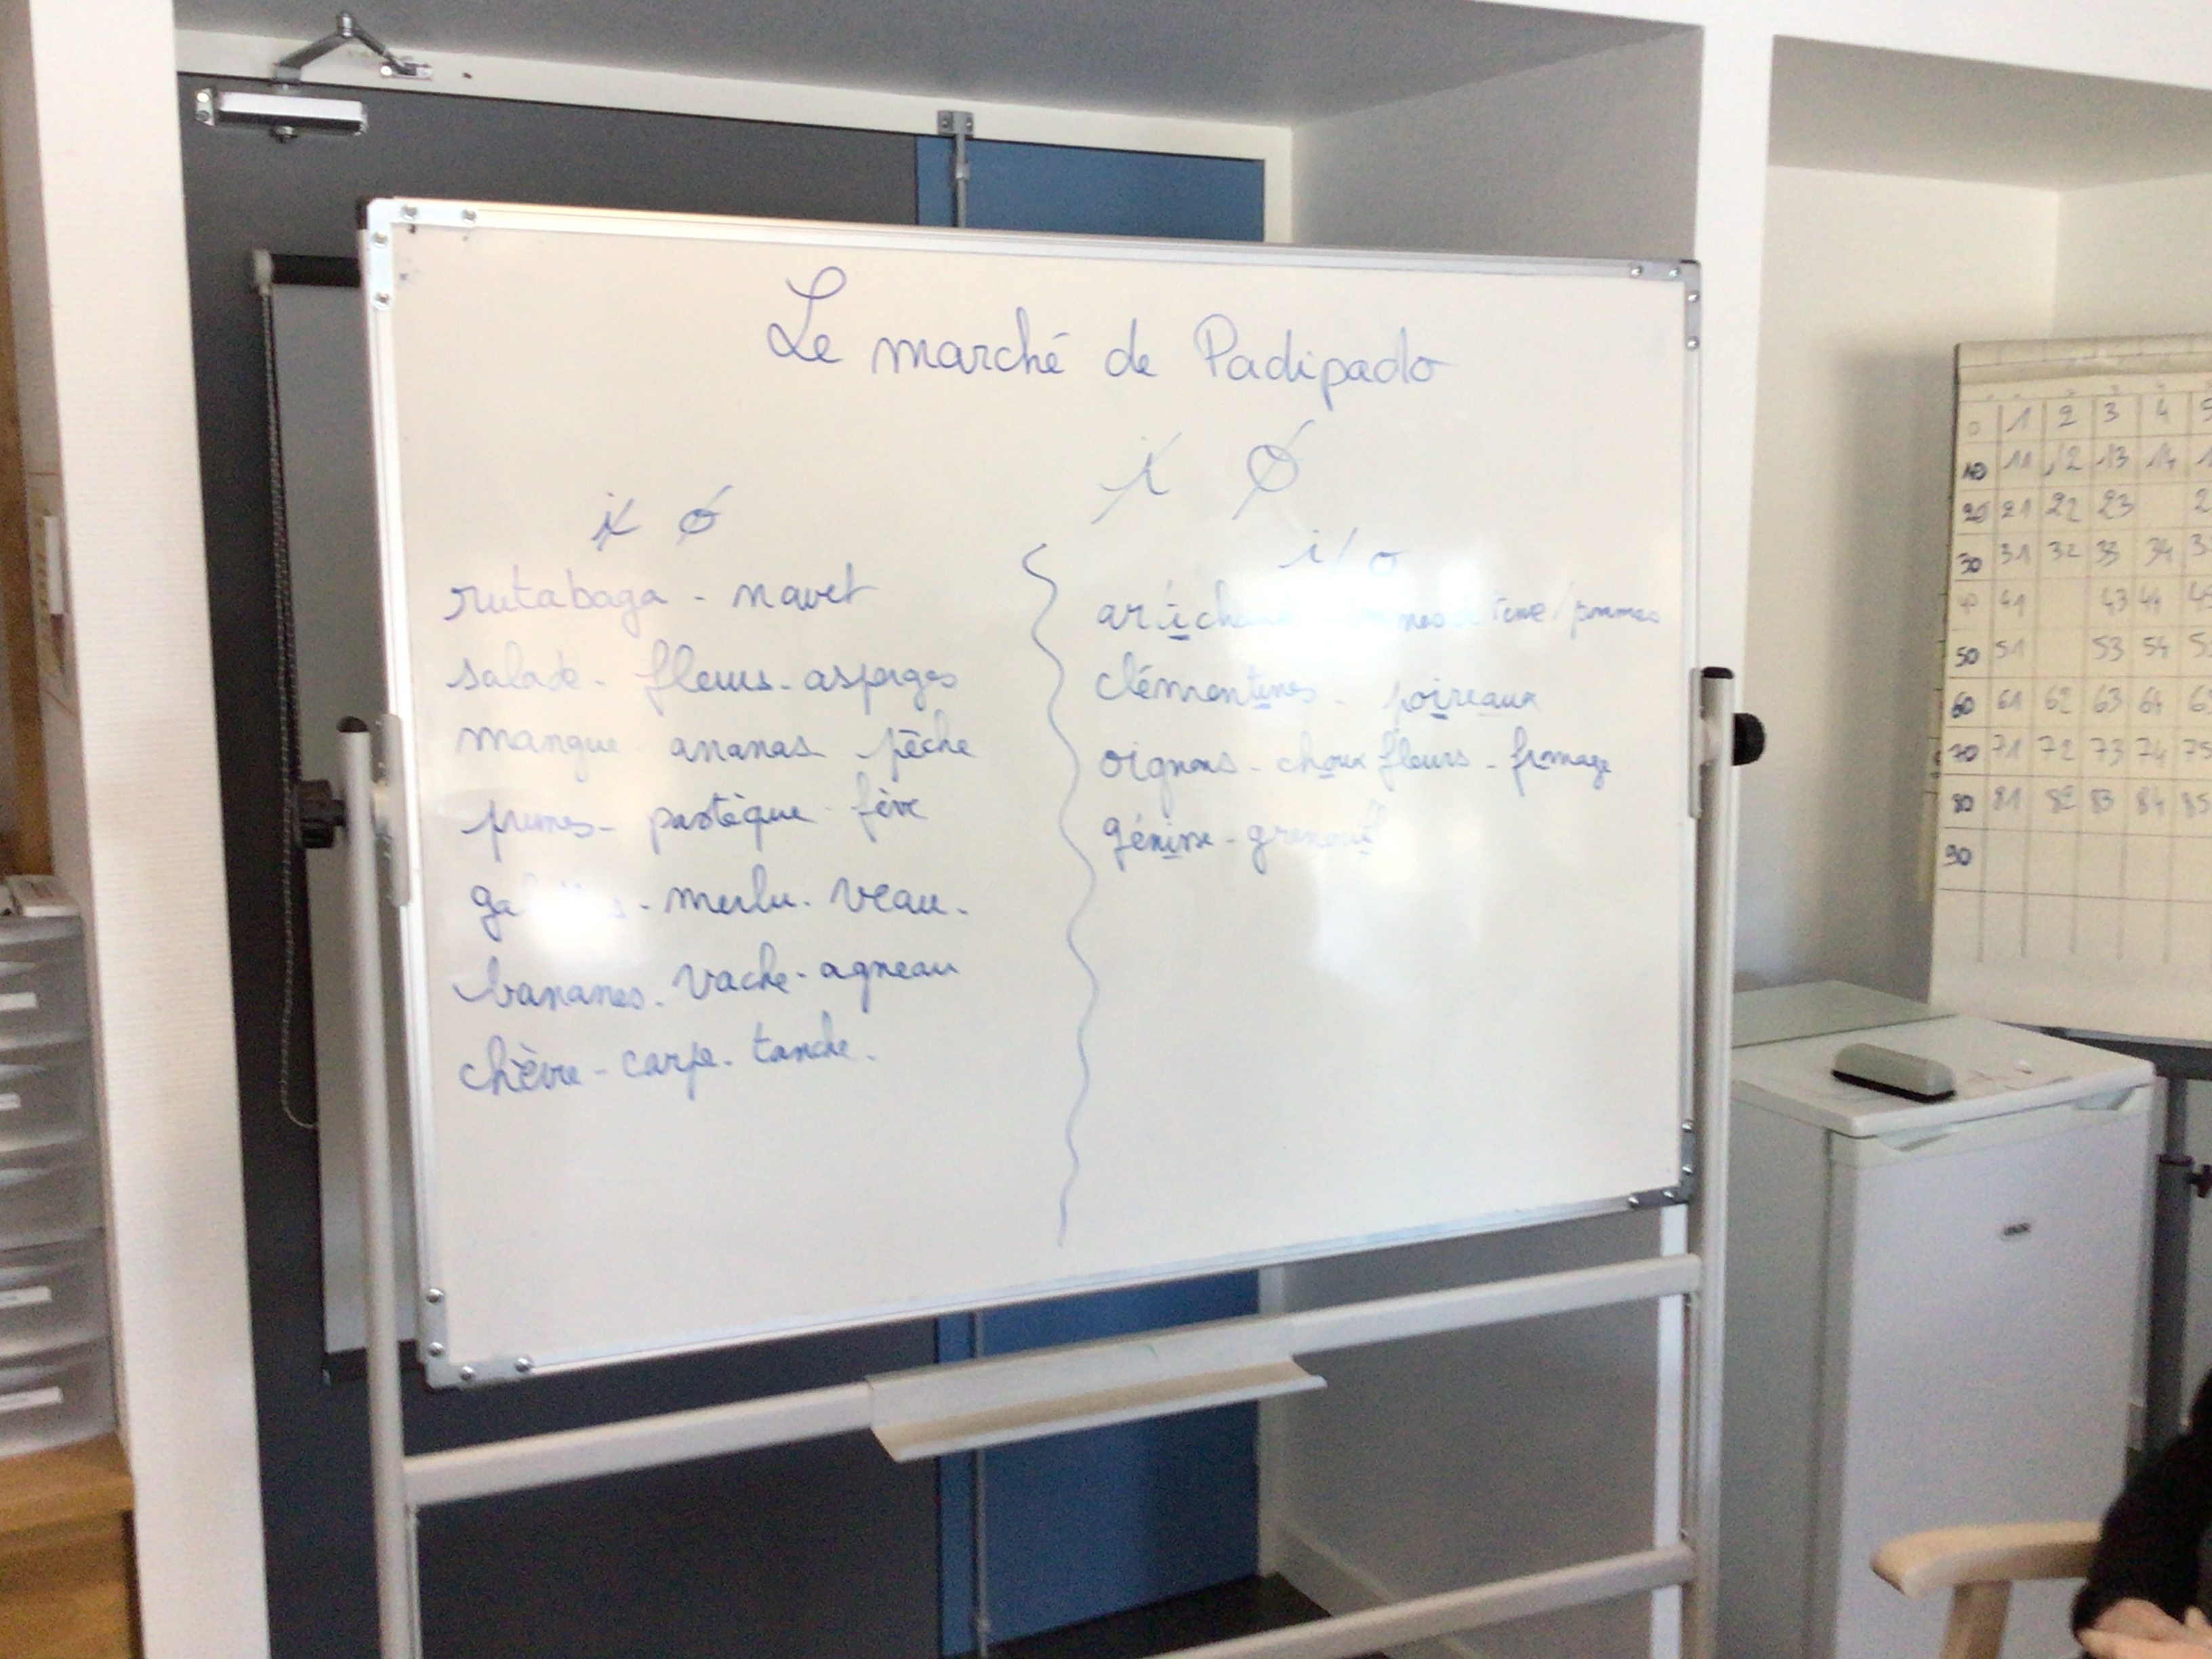 Le marché de Padipado
i o
i o
i / o
rutabaga - navet
salade - fleurs - asperges
mangue ananas pêche
prunes - pastèque - fève
merlu - veau -
bananes - vache - agneau
chèvre - carpe - tanche.
terre / pommes
clémentines - poireaux
oignons - choux fleurs - fromage
génisse -
0 1 2 3 4 5
10 11 12 13 14
20 21 22 23
30 31 32 33 34
40 41 43 44
50 51 53 54
60 61 62 63 64
70 71 72 73 74 75
80 81 82 83 84 85
90